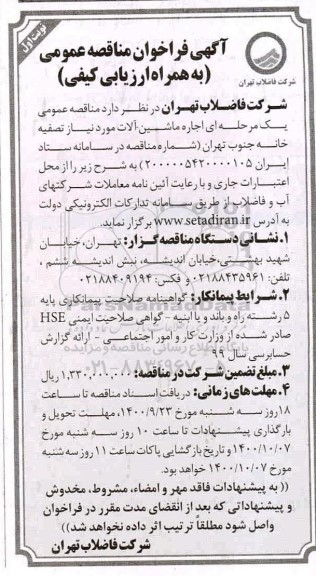 نوبت اول
آگهی فراخوان مناقصه عمومی
(به همراه ارزیابی کیفی)
شرکت فاضلاب تهران
شرکت فاضلاب تهران در نظر دارد مناقصه عمومی
یک مرحله ای اجاره ماشین آلات مورد نیاز تصفیه
خانه جنوب تهران (شماره مناقصه در سامانه ستاد
ایران ۲۰۰۰۰۰۵۴۲۰۰۰۰۱۰۵) به شرح زیر را از محل
اعتبارات جاری و با رعایت آئین نامه معاملات شرکتهای
آب و فاضلاب از طریق سامانه تدارکات الکترونیکی دولت
به آدرس www.setadiran.ir برگزار نماید.
۱. نشانی دستگاه مناقصه گزار: تهران، خیابان
شهید بهشتی، خیابان اندیشه، نبش اندیشه ششم ،
تلفن: ۰۲۱۸۸۴۳۵۹۶۱ و فکس: ۰۲۱۸۸۴۰۹۱۹۴
۲. شرایط پیمانکار: گواهینامه صلاحیت پیمانکاری پایه
۵ رشته راه و باند و یا ابنیه - گواهی صلاحیت ایمنی HSE
صادر شده از وزارت کار و امور اجتماعی - ارائه گزارش
حسابرسی سال ۹۹
۳. مبلغ تضمین شرکت در مناقصه: ۱,۳۳۰,۰۰۰,۰۰۰ ریال
۴. مهلت های زمانی: دریافت اسناد مناقصه تا ساعت
۱۸ روز سه شنبه مورخ ۱۴۰۰/۹/۲۳، مهلت تحویل و
بارگذاری پیشنهادات تا ساعت ۱۰ روز سه شنبه مورخ
۱۴۰۰/۱۰/۰۷ و تاریخ بازگشایی پاکات ساعت ۱۱ روز سه شنبه
مورخ ۱۴۰۰/۱۰/۰۷ خواهد بود.
(( به پیشنهادات فاقد مهر و امضاء، مشروط، مخدوش
و پیشنهاداتی که بعد از انقضای مدت مقرر در فراخوان
واصل شود مطلقا ترتیب اثر داده نخواهد شد))
شرکت فاضلاب تهران